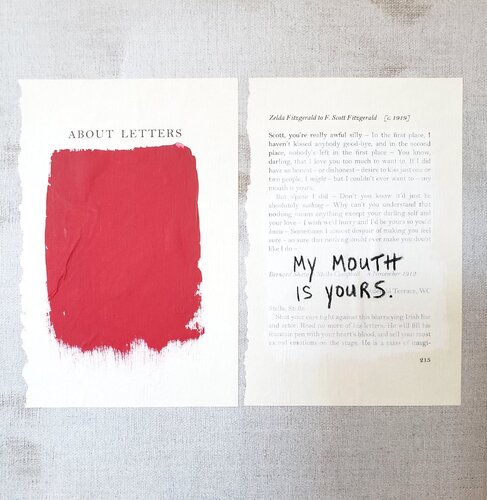 ABOUT LETTERS
Zelda Fitzgerald to F. Scott Fitzgerald [c. 1919]
Scott, you're really awful silly – In the first place, I
haven't kissed anybody good-bye, and in the second
place, nobody's left in the first place – You know,
darling, that I love you too much to want to. If I did
have an honest – or dishonest – desire to kiss just one or
two people, I might – but I couldn't ever want to – my
mouth is yours.
But s'pose I did – Don't you know it'd just be
absolutely nothing – Why can't you understand that
nothing means anything except your darling self and
your love – I wish we'd hurry and I'd be yours so you'd
know – Sometimes I almost despair of making you feel
sure – so sure that nothing could ever make you doubt
like I do –
MY MOUTH
IS YOURS.
Bernard Stella Campbell November 1912
Terrace, WC
Stella, Stella
Shut your ears tight against this blarneying Irish liar
and actor. Read no more of his letters. He will fill his
fountain pen with your heart's blood, and sell your most
sacred emotions on the stage. He is a mass of imagi-
215